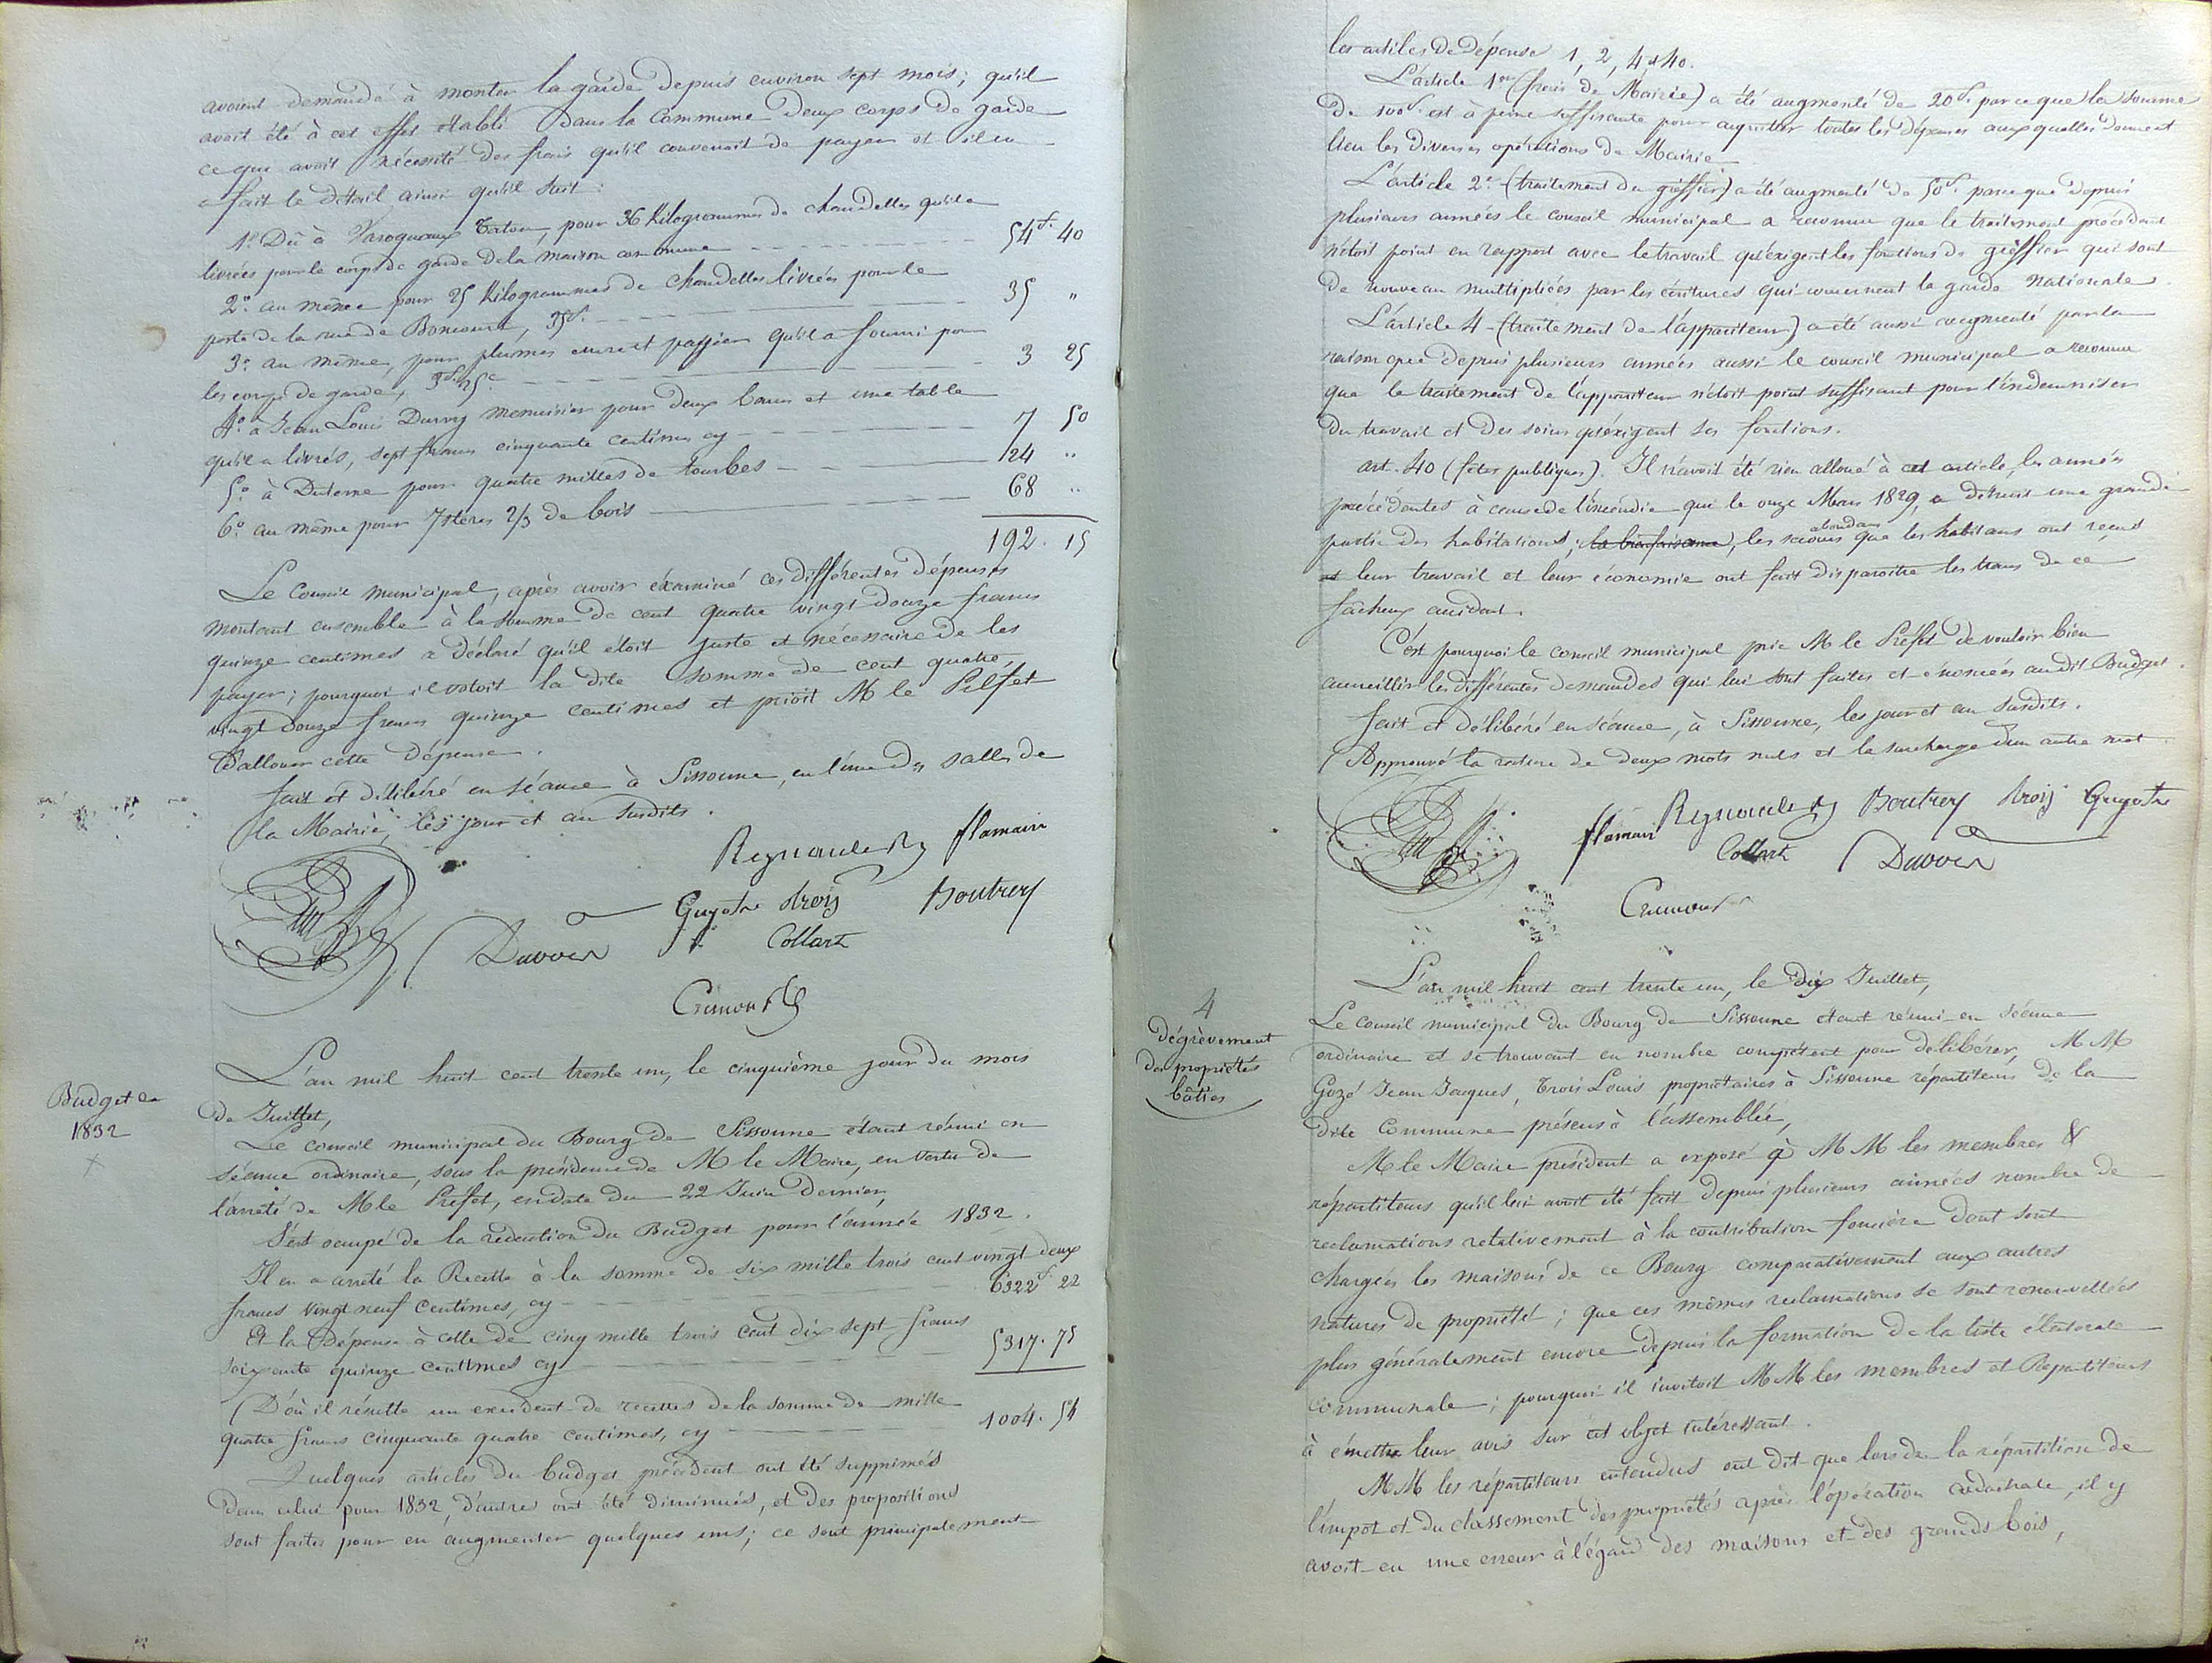 avaient demandé à monter la garde depuis environ sept mois; qu'il
avoit été à cet effet établi dans la Commune deux corps de garde
ce qui avoit nécessité des frais qu'il convenoit de payer et il en
a fait le détail ainsi qu'il suit:
1.º Dû à Varoqueaux Tatou, pour 36 Kilogrammes de chandelles qu'il a
livrées pour le corps de garde de la maison commune 54f. 40
2.º au même pour 25 Kilogrammes de chandelles livrées pour le
poste de la rue de Boncourt, 35f. 35 "
3.º au même, pour plumes encre et papier qu'il a fourni pour
les corps de garde, 3f. 25c 3 25
4.º à Jean Louis Durry menuisier pour deux bancs et une table
qu'il a livrés, sept francs cinquante centimes cy 7 50
5.º à Duterne pour quatre milles de tourbes 24 "
6.º au même pour 7 stères 2/3 de bois 68 "
192. 15
Le Conseil municipal, après avoir éxaminé ces différentes dépenses
montant ensemble à la somme de cent quatre vingt douze francs
quinze centimes a déclaré qu'il étoit juste et nécessaire de les
payer; pourquoi il votoit la dite somme de cent quatre
vingt douze francs quinze centimes et prioit M le Préfet
d'allouer cette dépense.
fait et délibéré en séance à Sissonne, en l'une des salles de
la Mairie, les jour et an susdits.
Regnauld flamain
Guyotre droit Boutroy
Duvver Collart
Crimont
Budget de
1832
L'an mil huit cent trente un, le cinquième jour du mois
de Juillet,
Le conseil municipal du Bourg de Sissonne étant réuni en
séance ordinaire, sous la présidence de M le Maire, en vertu de
l'arrêté de M le Préfet, en date du 22 Juin dernier,
S'est ocupé de la rédaction du Budget pour l'année 1832.
Il en a arrêté la Recette à la somme de six mille trois cent vingt deux
francs vingt neuf centimes, cy 6322f. 22
Et la Dépense à celle de cinq mille trois cent dix sept francs
soixante quinze centimes cy 5317. 75
D'où il résulte un excédent de recettes de la somme de mille
quatre francs cinquante quatre centimes, cy 1004. 54
Quelques articles du budget précédent ont été supprimés
dans celui pour 1832, d'autres ont été diminués, et des propositions
sont faites pour en augmenter quelques uns; ce sont principalement
les articles de dépense 1, 2, 4 et 40.
L'article 1er (frais de Mairie) a été augmenté de 20f. parceque la somme
de 100f. est à peine suffisante pour acquitter toutes les dépenses auxquelles donnent
lieu les diverses opérations de Mairie.
L'article 2.e (traitement du greffier) a été augmenté de 50f. parce que depuis
plusieurs années le conseil municipal a reconnu que le traitement précédent
n'étoit point en rapport avec le travail qu'éxigent les fonctions de greffier qui sont
de nouveau multipliées par les écritures qui concernent la garde nationale.
L'article 4 (traitement de l'appariteur) a été aussi augmenté par la
raison que depuis plusieurs années aussi le conseil municipal a reconnu
que le traitement de l'appariteur n'étoit point suffisant pour l'indemniser
du travail et des soins qu'éxigent ses fonctions.
art. 40 (fêtes publiques). Il n'avoit été rien alloué à cet article, les années
précédentes à cause de l'incendie qui le onze Mars 1829, a détruit une grande
partie des habitations; la bienfaisance, les secours abondans que les habitans ont reçus
et leur travail et leur économie ont fait disparoitre les traces de ce
fâcheux accident.
C'est pourquoi le conseil municipal prie M le Préfet de vouloir bien
accueillir les différentes demandes qui lui sont faites et énoncées au dit Budget.
fait et délibéré en séance, à Sissonne, les jour et an susdits.
Approuvé la rature de deux mots nuls et la surcharge d'un autre mot
flamain Regnauld Boutroy droit Guyotre
Collart Duvver
Crimont
4
dégrèvement
des propriétés
bâties
L'an mil huit cent trente un, le dix Juillet,
Le conseil municipal du Bourg de Sissonne étant réuni en séance
ordinaire et se trouvant en nombre compétent pour délibérer, MM
Gozé Jean Jacques, Trois Louis propriétaires à Sissonne répartiteurs de la
dite Commune présens à l'assemblée,
M le Maire président a exposé à MM les membres &
répartiteurs qu'il lui avoit été fait depuis plusieurs années nombre de
reclamations relativement à la contribution foncière dont sont
chargées les maisons de ce Bourg comparativement aux autres
natures de propriété; que ces mêmes reclamations se sont renouvellées
plus généralement encore depuis la formation de la liste électorale
communale; pourquoi il invitoit MM les membres et Répartiteurs
à émettre leur avis sur cet objet intéressant.
MM les répartiteurs entendus ont dit que lors de la répartition de
l'impot et du classement des propriétés après l'opération cadastrale, il y
avoit eu une erreur à l'égard des maisons et des grands bois,